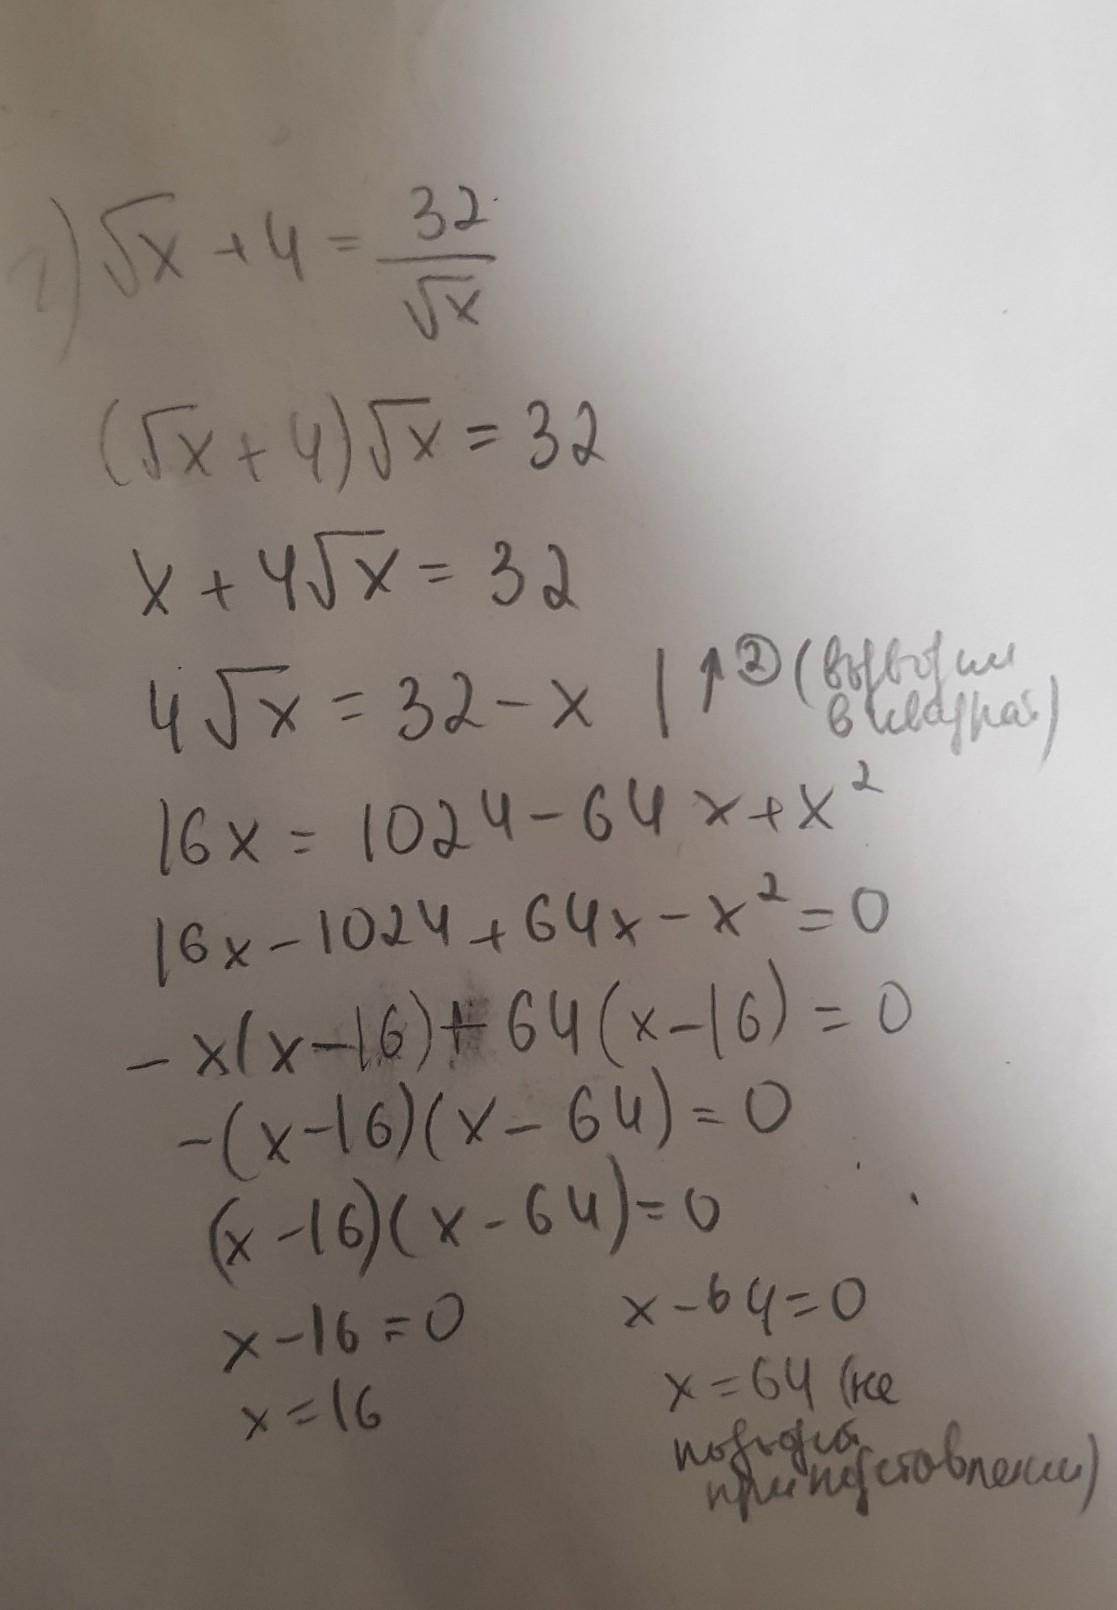 г) √x + 4 = 32/√x
(√x + 4)√x = 32
x + 4√x = 32
4√x = 32 - x | ↑² (возводим
в квадрат)
16x = 1024 - 64x + x²
16x - 1024 + 64x - x² = 0
-x(x - 16) + 64(x - 16) = 0
-(x-16)(x - 64) = 0
(x - 16)(x - 64) = 0
x - 16 = 0 x - 64 = 0
x = 16 x = 64 (не
подходит
при подставлении)